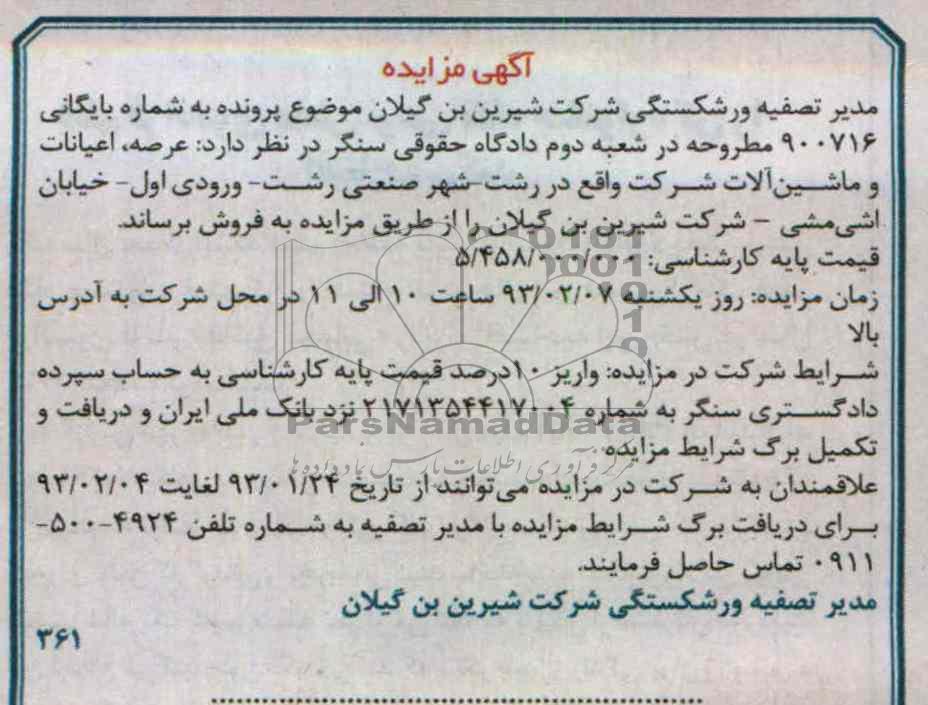 آگهی مزایده
مدیر تصفیه ورشکستگی شرکت شیرین بن گیلان موضوع پرونده به شماره بایگانی
۹۰۰۷۱۶ مطروحه در شعبه دوم دادگاه حقوقی سنگر در نظر دارد: عرصه، اعیانات
و ماشین‌آلات شرکت واقع در رشت-شهر صنعتی رشت- ورودی اول- خیابان
اشی‌مشی – شرکت شیرین بن گیلان را از طریق مزایده به فروش برساند.
قیمت پایه کارشناسی: ۵/۴۵۸/۰۰۰/۰۰۰
زمان مزایده: روز یکشنبه ۹۳/۰۲/۰۷ ساعت ۱۰ الی ۱۱ در محل شرکت به آدرس
بالا
شرایط شرکت در مزایده: واریز ۱۰درصد قیمت پایه کارشناسی به حساب سپرده
دادگستری سنگر به شماره ۲۱۷۱۳۵۴۴۱۷۰۰۴ نزد بانک ملی ایران و دریافت و
تکمیل برگ شرایط مزایده.
علاقمندان به شرکت در مزایده می‌توانند از تاریخ ۹۳/۰۱/۲۴ لغایت ۹۳/۰۲/۰۴
برای دریافت برگ شرایط مزایده با مدیر تصفیه به شماره تلفن ۴۹۲۴-۵۰۰-
۰۹۱۱ تماس حاصل فرمایند.
مدیر تصفیه ورشکستگی شرکت شیرین بن گیلان
۳۶۱
ParsNamadData
مرکز فرآوری اطلاعات پارس نماد داده ها